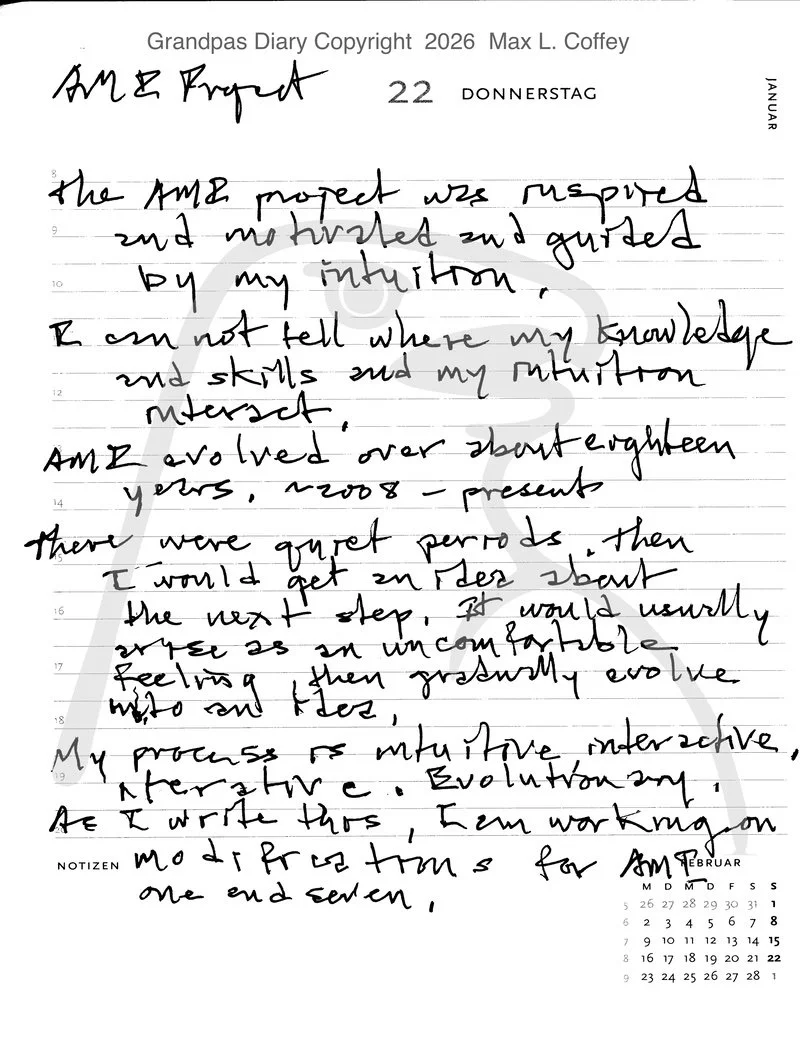 Grandpas Diary Copyright 2026 Max L. Coffey
AME Project
22 DONNERSTAG
JANUAR
8
the AME project was inspired
9
and motivated and guided
10
by my intuition.
I can not tell where my knowledge
and skills and my intuition
12
interact.
AME evolved over about eighteen
years, ~2008 – present
14
There were quiet periods, then
I would get an idea about
16
the next step. It would usually
aryse as an uncomfortable
17
feeling, then gradually evolve
into an idea.
18
My process is intuitive, interactive,
19
iterative. Evolutionary.
As I write this, I am working on
NOTIZEN
modifications for AME
one and seven.
FEBRUAR
M D M D F S S
5 26 27 28 29 30 31 1
6 2 3 4 5 6 7 8
7 9 10 11 12 13 14 15
8 16 17 18 19 20 21 22
9 23 24 25 26 27 28 1